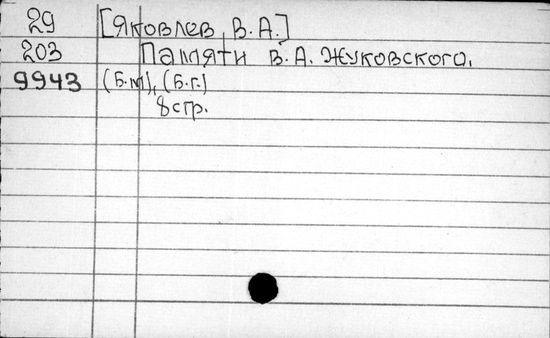 29 [Яковлев, В.А.]
203 Памяти В.А. Жуковского.
9943 (Б.м), (Б.г.)
8 стр.